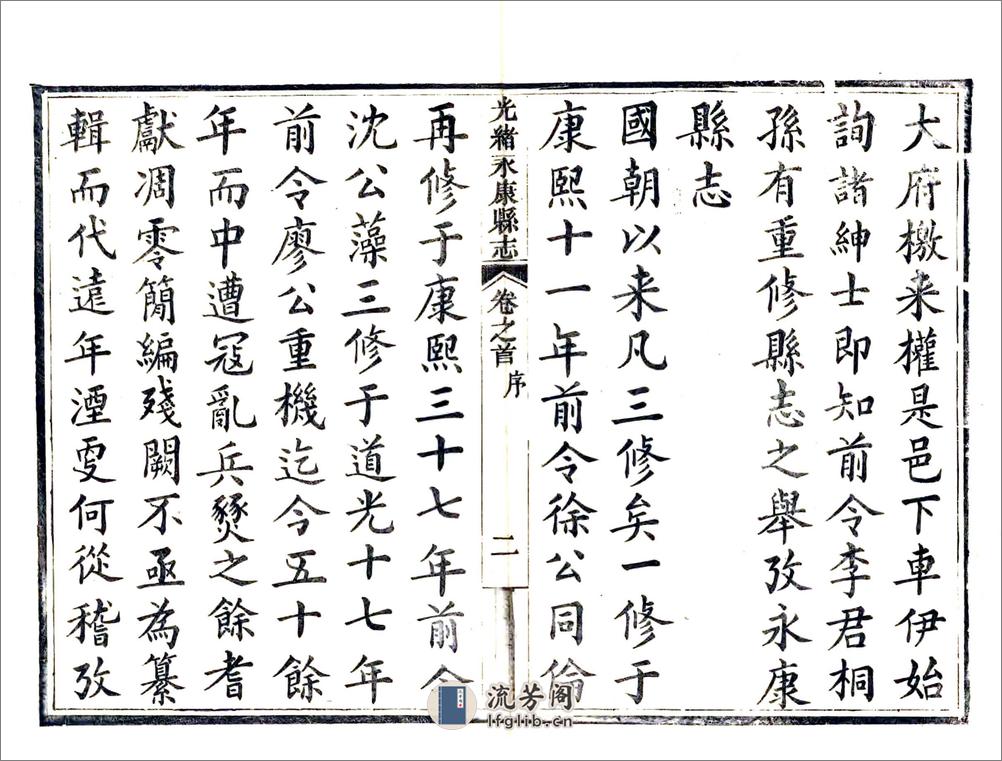 大府檄来權是邑下車伊始
詢諸紳士即知前令李君桐
孫有重修縣志之舉攷永康
縣志
國朝以来凡三修矣一修于
康熙十一年前令徐公同倫
光緒永康縣志 卷之首 序 二
再修于康熙三十七年前令
沈公藻三修于道光十七年
前令廖公重機迄今五十餘
年而中遭冦亂兵燹之餘耆
獻凋零簡編殘闕不亟為纂
輯而代遠年湮更何從稽攷
流芳阁
lfglib.cn